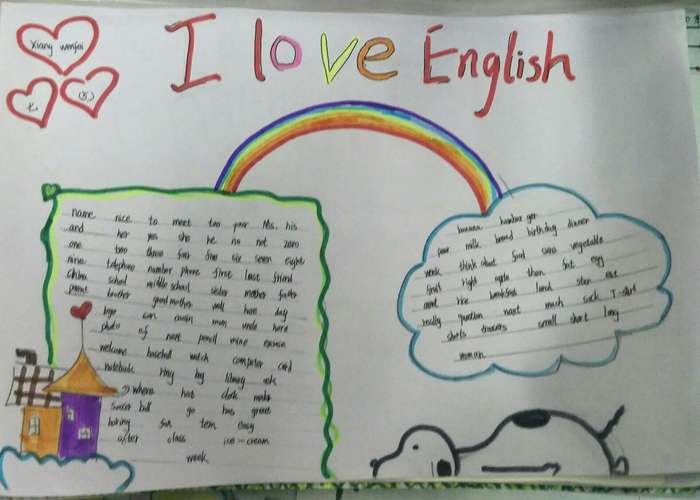 I love English
Xiang wenjai
七
(5)
name nice to meet too your Ms. his
and her yes she he no not zero
one two three four five six seven eight
nine telephone number phone first last friend
China school middle school sister mother father
parent brother grandmother well have day
boys son cousin mom uncle here
photo of next pencil mine excuse
welcome baseball watch computer card
notebook ring by library ask
where hat clock make
soccer ball go has great
boring fun tem easy
after class ice-cream
week
banana hamburger
pear milk bread birthday dinner
week think about food sure vegetable
fruit right apple then fat egg
carrot rice breakfast lunch star eat
really question next much sock T-shirt
shorts trousers small short long
woman